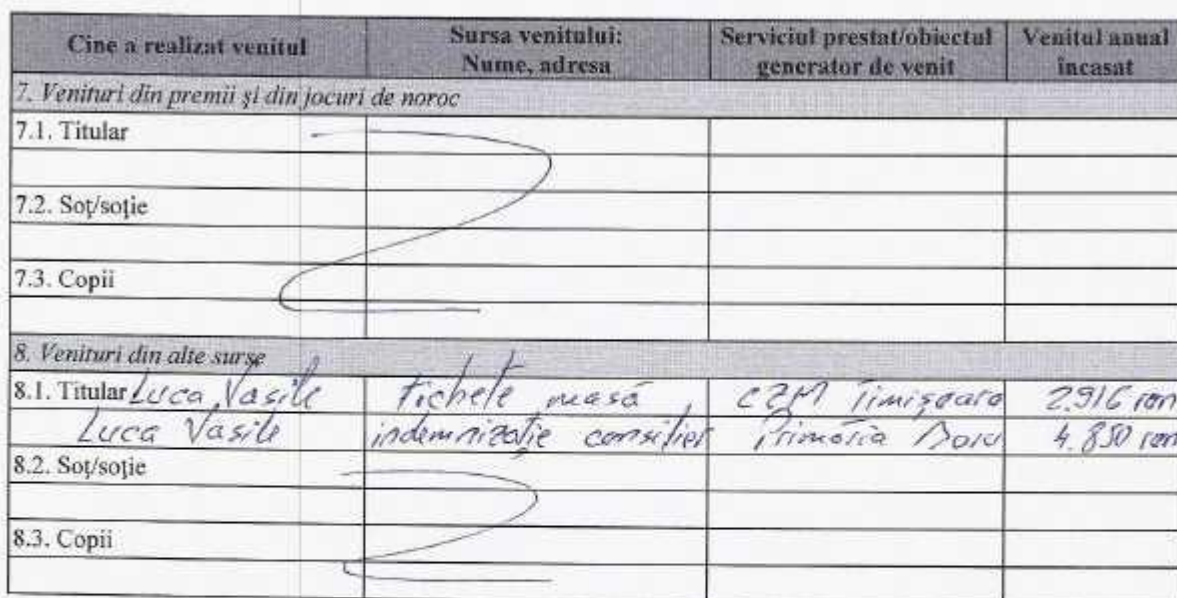 Cine a realizat venitul | Sursa venitului: Nume, adresa | Serviciul prestat/obiectul generator de venit | Venitul anual încasat
7. Venituri din premii şi din jocuri de noroc
7.1. Titular
7.2. Soţ/soţie
7.3. Copii
8. Venituri din alte surse
8.1. Titular Luca Vasile | Tichete masă | CZM Timişoara | 2.916 ron
Luca Vasile | indemnizaţie consilier | Primăria | 4.850 ron
8.2. Soţ/soţie
8.3. Copii